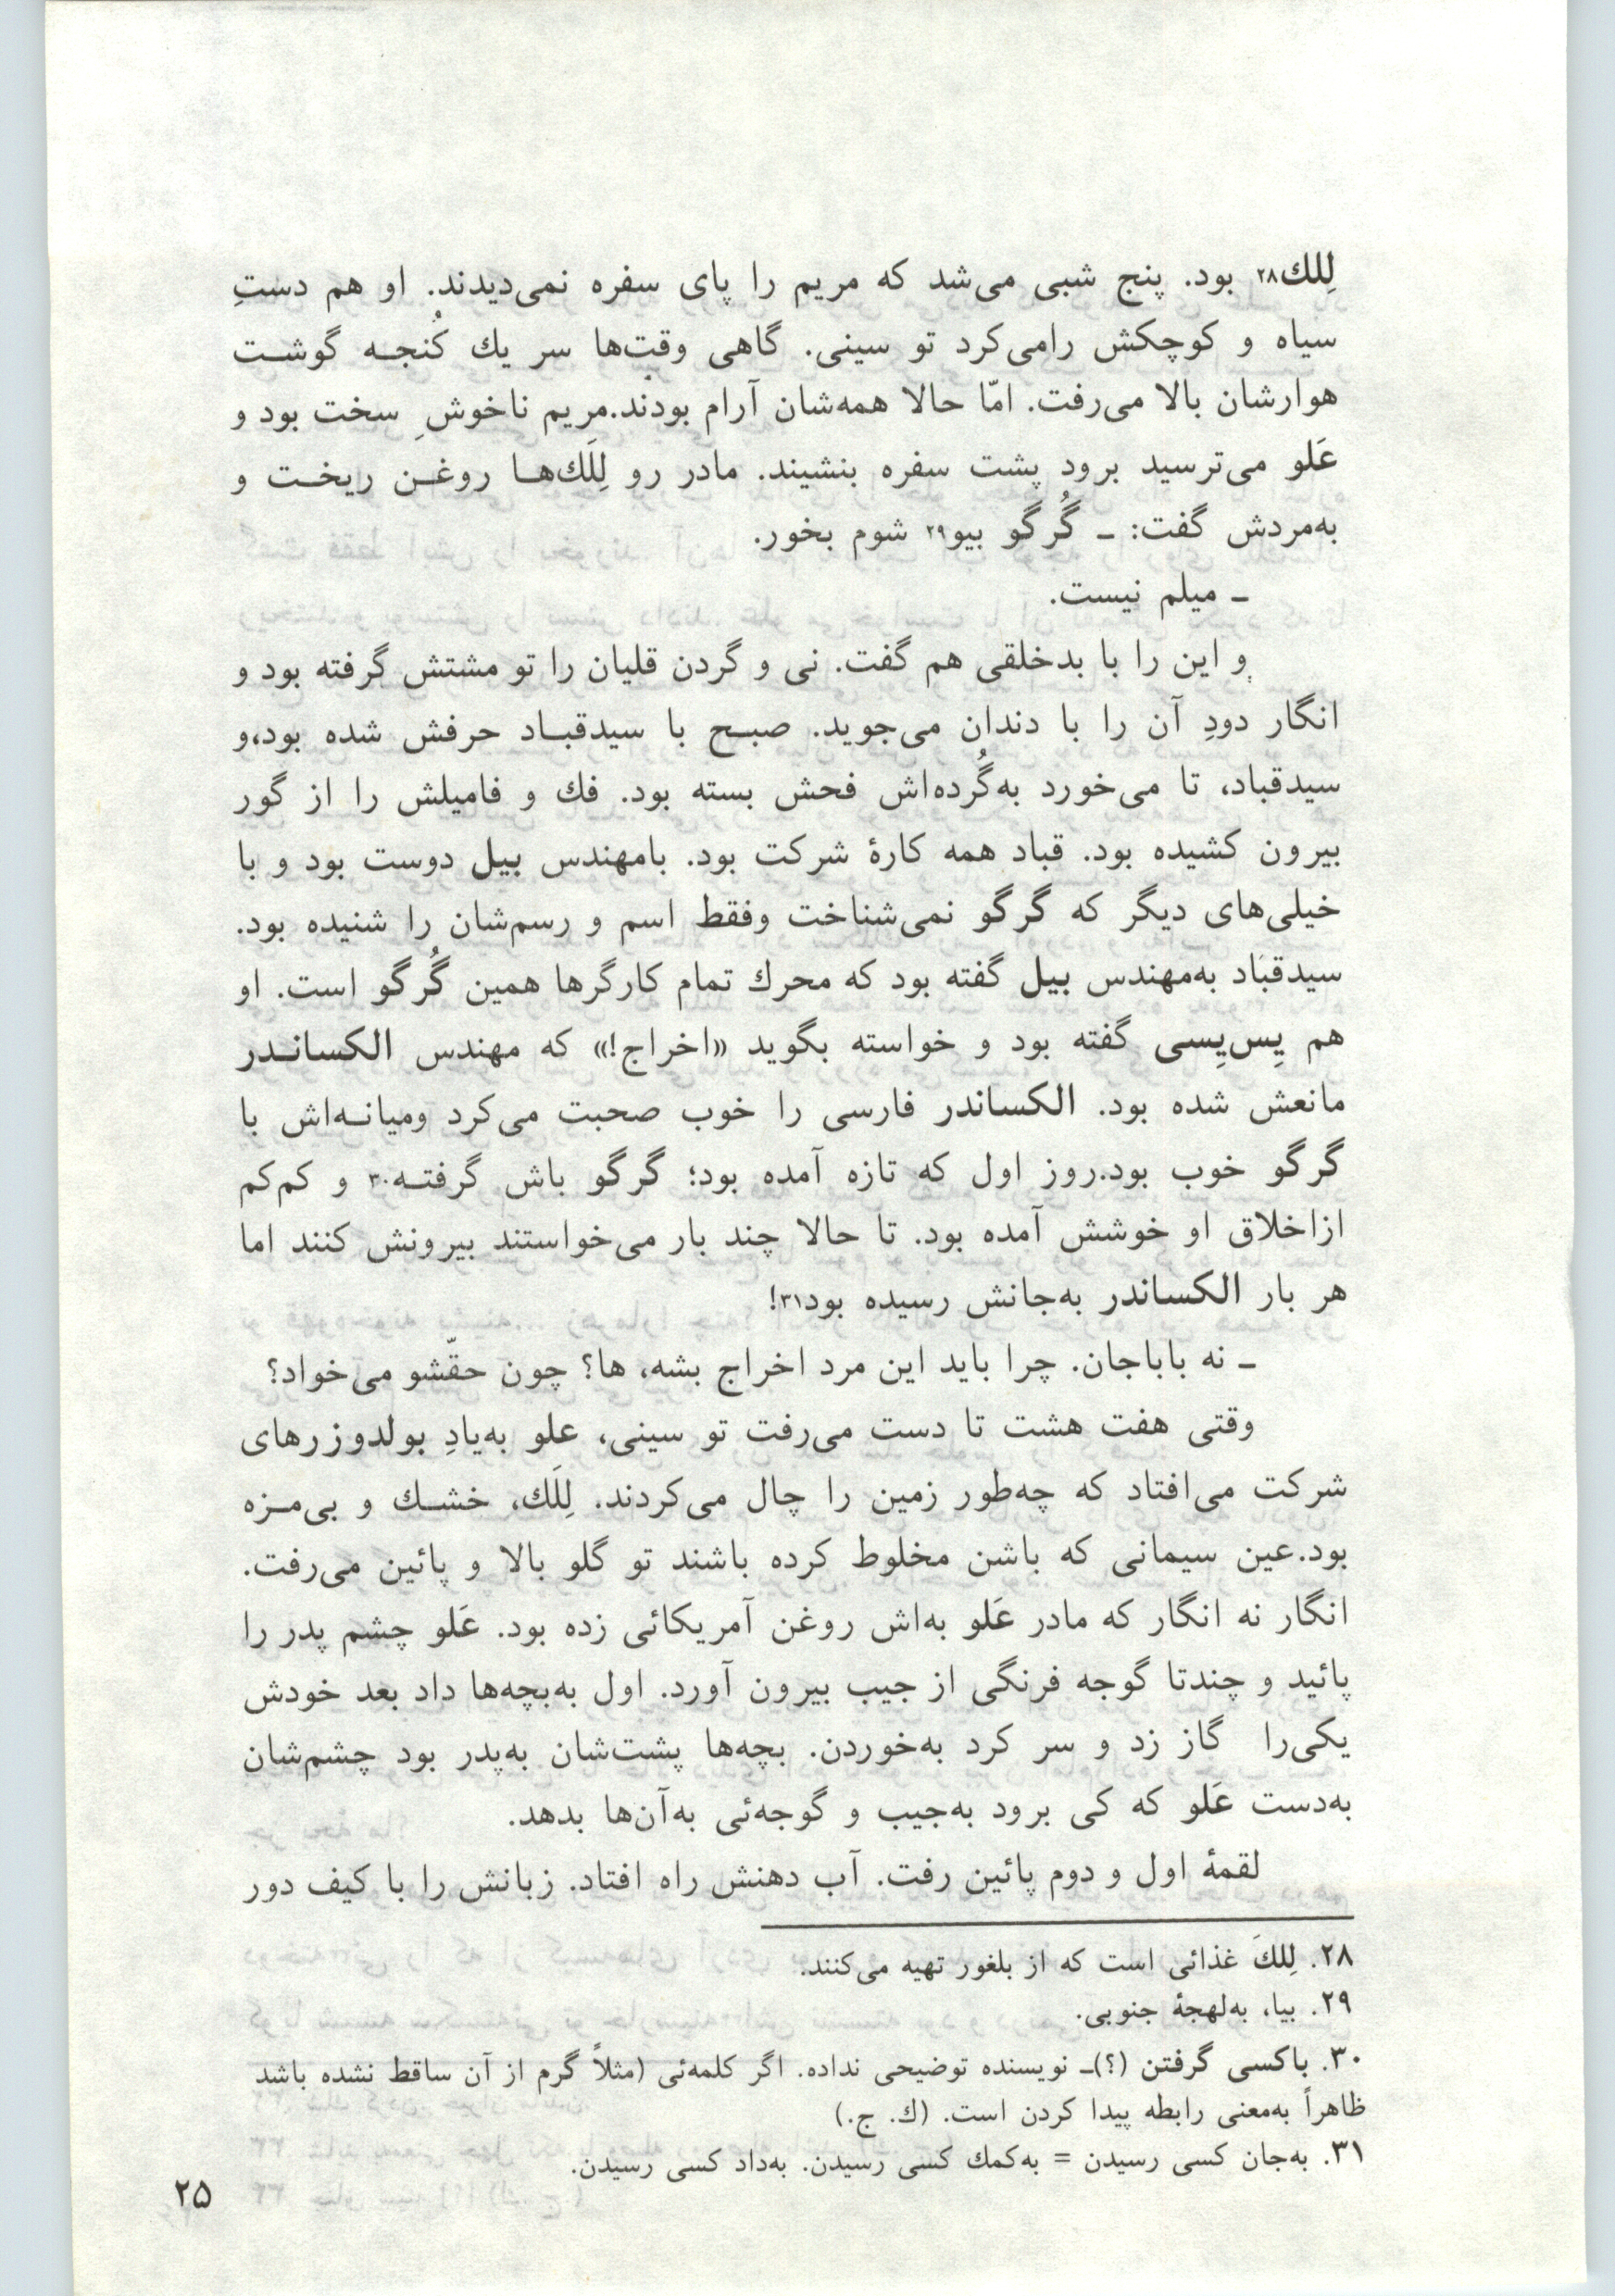 لِلك۲۸ بود. پنج شبی می‌شد که مریم را پای سفره نمی‌دیدند. او هم دستِ
سیاه و کوچکش رامی‌کرد تو سینی. گاهی وقت‌ها سر یك کُنجـه گوشـت
هوارشان بالا می‌رفت. امّا حالا همه‌شان آرام بودند.مریم ناخوشِ سخت بود و
عَلو می‌ترسید برود پشت سفره بنشیند. مادر رو لِلَك‌هـا روغـن ریخـت و
به‌مردش گفت: ـ گُرگو بیو۲۹ شوم بخور.
ـ میلم نیست.
و این را با بدخلقی هم گفت. نی و گردن قلیان را تو مشتش گرفته بود و
انگار دودِ آن را با دندان می‌جوید. صبـح با سیدقبـاد حرفش شده بود،و
سیدقباد، تا می‌خورد به‌گُرده‌اش فحش بسته بود. فك و فامیلش را از گور
بیرون کشیده بود. قباد همه کارهٔ شرکت بود. بامهندس بیل دوست بود و با
خیلی‌های دیگر که گرگو نمی‌شناخت وفقط اسم و رسم‌شان را شنیده بود.
سیدقباد به‌مهندس بیل گفته بود که محرك تمام کارگرها همین گُرگو است. او
هم پِس‌پِسی گفته بود و خواسته بگوید «اخراج!» که مهندس الکسانـدر
مانعش شده بود. الکساندر فارسی را خوب صحبت می‌کرد ومیانـه‌اش با
گرگو خوب بود.روز اول که تازه آمده بود؛ گرگو باش گرفتـه۳۰ و کم‌کم
ازاخلاق او خوشش آمده بود. تا حالا چند بار می‌خواستند بیرونش کنند اما
هر بار الکساندر به‌جانش رسیده بود۳۱!
ـ نه باباجان. چرا باید این مرد اخراج بشه، ها؟ چون حقّشو می‌خواد؟
وقتی هفت هشت تا دست می‌رفت تو سینی، علو به‌یادِ بولدوزرهای
شرکت می‌افتاد که چه‌طور زمین را چال می‌کردند. لِلَك، خشـك و بی‌مـزه
بود.عین سیمانی که باشن مخلوط کرده باشند تو گلو بالا و پائین می‌رفت.
انگار نه انگار که مادر عَلو به‌اش روغن آمریکائی زده بود. عَلو چشم پدر را
پائید و چندتا گوجه فرنگی از جیب بیرون آورد. اول به‌بچه‌ها داد بعد خودش
یکی‌را گاز زد و سر کرد به‌خوردن. بچه‌ها پشت‌شان به‌پدر بود چشم‌شان
به‌دست عَلو که کی برود به‌جیب و گوجه‌ئی به‌آن‌ها بدهد.
لقمهٔ اول و دوم پائین رفت. آب دهنش راه افتاد. زبانش را با کیف دور
۲۸. لِلكَ غذائی است که از بلغور تهیه می‌کنند.
۲۹. بیا، به‌لهجهٔ جنوبی.
۳۰. باکسی گرفتن (؟)ـ نویسنده توضیحی نداده. اگر کلمه‌ئی (مثلاً گرم از آن ساقط نشده باشد
ظاهراً به‌معنی رابطه پیدا کردن است. (ك. ج.)
۳۱. به‌جان کسی رسیدن = به‌کمك کسی رسیدن. به‌داد کسی رسیدن.
۲۵